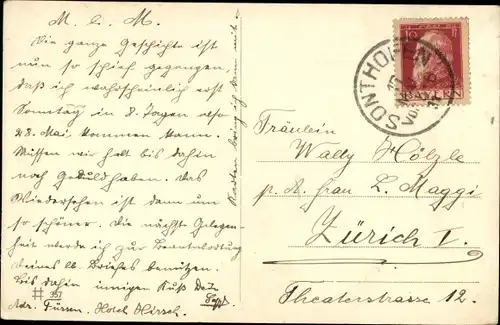 M. l. M.
Die ganze Geschichte ist
nun so schief gegangen,
daß ich wahrscheinlich erst
Sonntag in 8 Tagen also
28. Mai kommen kann.
Müssen wir halt bis dahin
noch Geduld haben. Das
Wiedersehen ist dann um
so schöner. Die nächste Gelegen-
heit werde ich zur Beantwortung
deines lb. Briefes benützen.
Bis dahin innigen Kuß
Adr. Füssen. Hotel Hirsch.
Karten bring ich Dir mit
357
SONTHOFEN
10
BAYERN
Fräulein
Wally Hölzle
p. A. Frau L. Maggi
Zürich I.
Theaterstrasse 12.